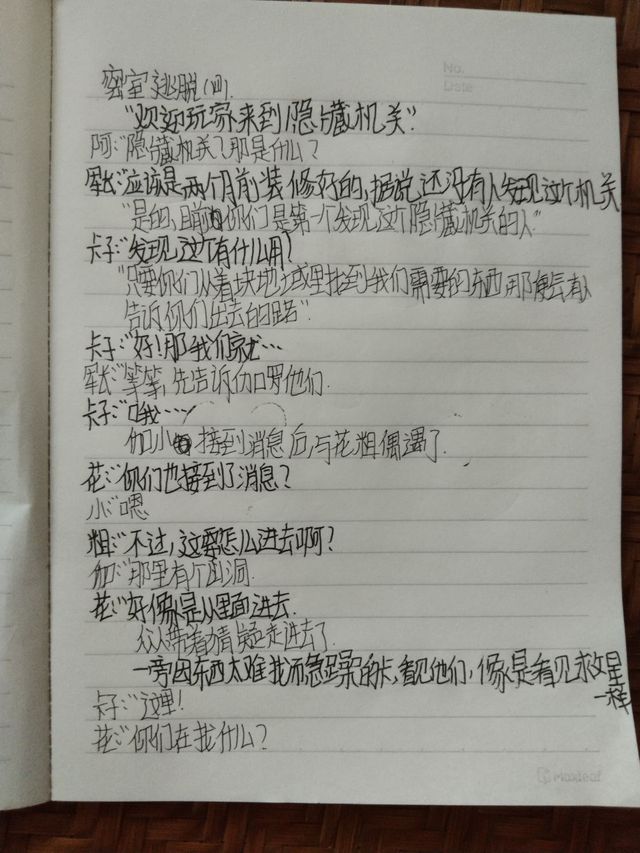 No.
Date
密室逃脱(四).
"欢迎玩家来到隐藏机关"
阿:"隐藏机关?那是什么?
军长:"应该是两个月前装修好的,据说还没有人发现这个机关
"是的,目前你们是第一个发现这个隐藏机关的人"
卡子:"发现这个有什么用?
"只要你们从着块地域里找到我们需要的东西,那便会有人
告诉你们出去的路"
卡子:"好!那我们就…
军长:"等等,先告诉伽罗他们.
卡子:"哦……
伽小接到消息后,与花粗偶遇了.
花:"你们也接到了消息?
小:"嗯
粗:"不过,这要怎么进去啊?
伽:"那里有个山洞.
花:"好像是从里面进去.
众人带着猜疑走进去了.
一旁因东西太难找而急躁的卡,看见他们,像是看见救星
一样
卡子:"这里!
花:"你们在找什么?
Maxleaf